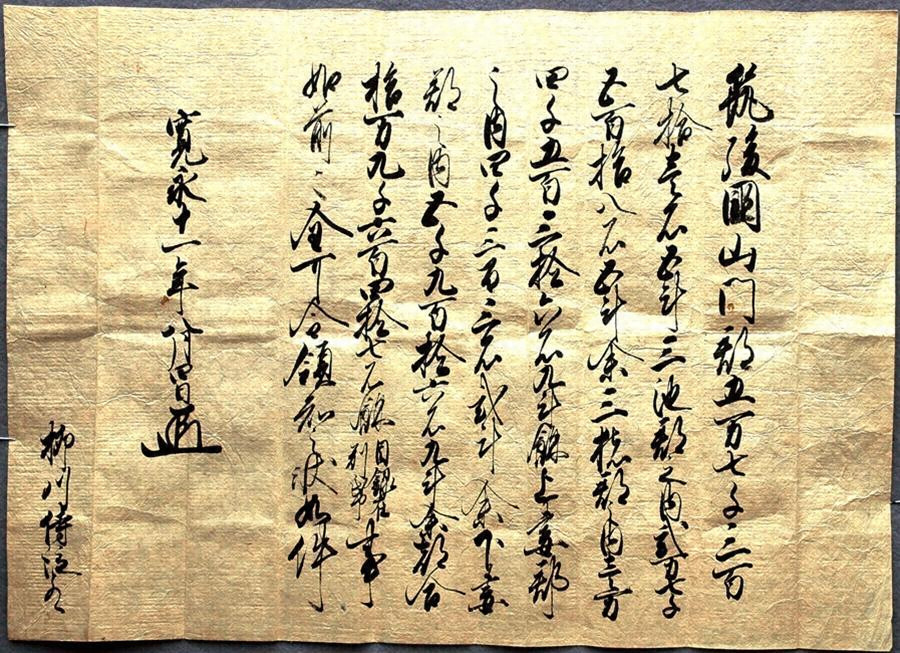 筑後國山門郡五万七千三百
七拾壱石五斗三池郡之内弐万七千
五百拾八石五斗余三潴郡之内壱万
四千五百三拾六石九斗餘上妻郡
之内四千三百三石弐斗余下妻
郡之内五千九百拾六石九斗余都合
拾万九千六百四拾七石餘目録在別帋事
如前々全可令領知之状如件
寛永十一年八月四日
柳川侍従とのへ